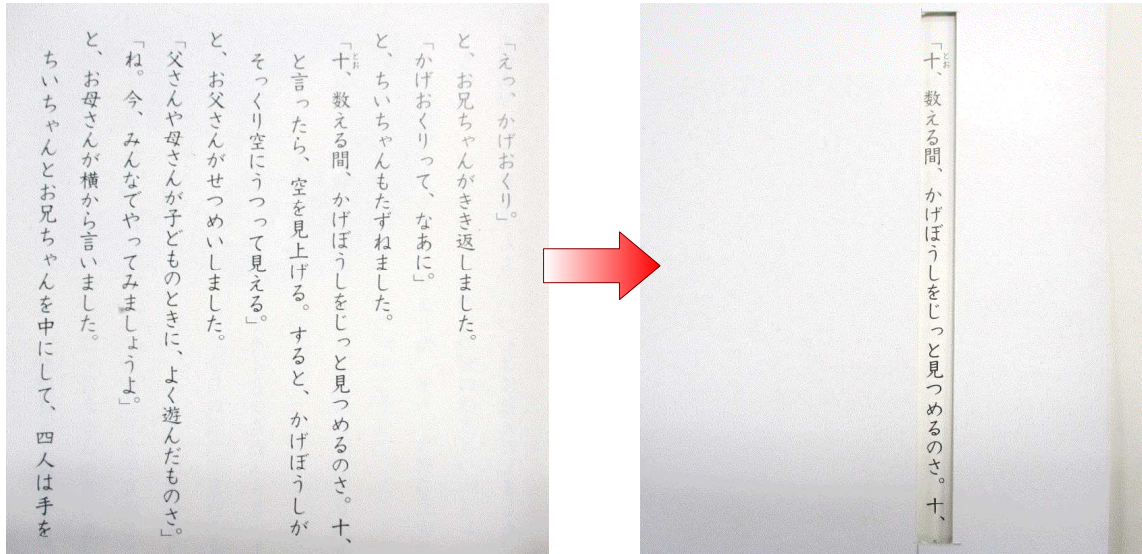 「えっ、かげおくり。」
と、お兄ちゃんがきき返しました。
「かげおくりって、なあに。」
と、ちいちゃんもたずねました。
「十、数える間、かげぼうしをじっと見つめるのさ。十、
と言ったら、空を見上げる。すると、かげぼうしが
そっくり空にうつって見える。」
と、お父さんがせつめいしました。
「父さんや母さんが子どものときに、よく遊んだものさ。」
「ね。今、みんなでやってみましょうよ。」
と、お母さんが横から言いました。
ちいちゃんとお兄ちゃんを中にして、四人は手を
「十、数える間、かげぼうしをじっと見つめるのさ。十、